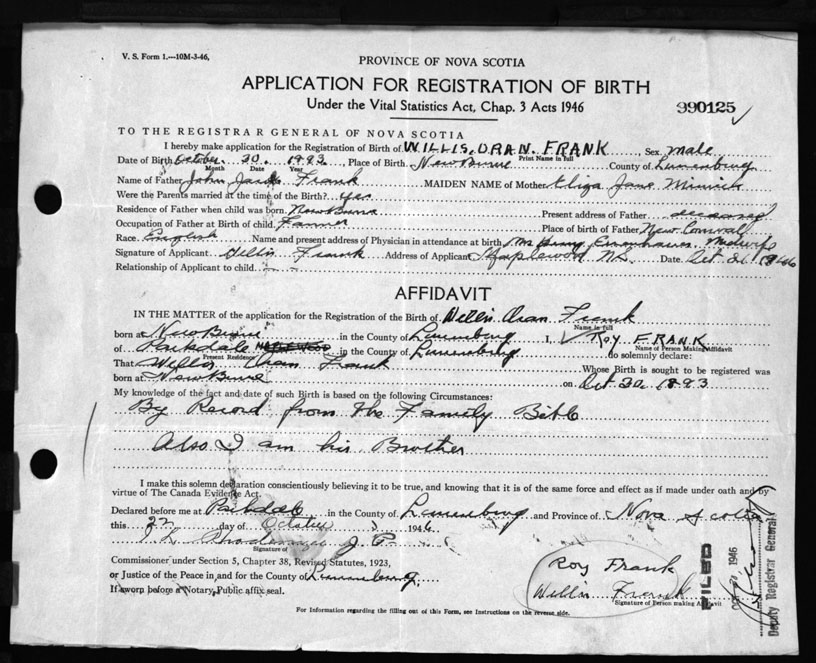 V. S. Form 1.---10M-3-46,
PROVINCE OF NOVA SCOTIA
APPLICATION FOR REGISTRATION OF BIRTH
Under the Vital Statistics Act, Chap. 3 Acts 1946
990125
TO THE REGISTRAR GENERAL OF NOVA SCOTIA
I hereby make application for the Registration of Birth of WILLIS, ORAN. FRANK, Sex Male
Print Name in full
Date of Birth October 30. 1893, Place of Birth New Burne County of Lunenburg
Month Date Year
Name of Father John Frank MAIDEN NAME of Mother Eliza Jane Minick
Were the Parents married at the time of the Birth? Yes
Residence of Father when child was born New Burne Present address of Father deceased
Occupation of Father at Birth of child Farmer Place of birth of Father New Cornwall
Race English Name and present address of Physician in attendance at birth Mrs Eisenhauer Midwife
Signature of Applicant Willis Frank Address of Applicant Maplewood N.S. Date Oct 1946
Relationship of Applicant to child - -
AFFIDAVIT
IN THE MATTER of the application for the Registration of Birth of Willis Oran Frank
Name in full
born at New Burne in the County of Lunenburg I, Roy FRANK
Name of Person Making Affidavit
of Parkdale in the County of Lunenburg do solemnly declare:
Present Residence
That Willis Oran Frank Whose Birth is sought to be registered was
born at New Burne on Oct 30, 1893
My knowledge of the fact and date of such Birth is based on the following Circumstances:
By Record from the Family Bible
Also I am his Brother
I make this solemn declaration conscientiously believing it to be true, and knowing that it is of the same force and effect as if made under oath and by
virtue of The Canada Evidence Act.
Declared before me at Parkdale in the County of Lunenburg and Province of Nova Scotia
this 22 day of October 1946
J. P.
Signature of
Commissioner under Section 5, Chapter 38, Revised Statutes, 1923,
or Justice of the Peace in and for the County of Lunenburg
If sworn before a Notary Public affix seal.
Roy Frank
Willis Frank
Signature of Person making Affidavit
FILED
OCT 1946
Deputy Registrar General
For Information regarding the filling out of this Form, see Instructions on the reverse side.